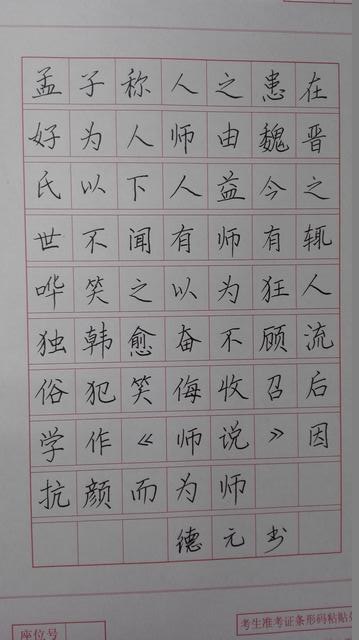 孟子称人之患在
好为人师由魏晋
氏以下人益今之
世不闻有师有辄
哗笑之以为狂人
独韩愈奋不顾流
俗犯笑侮收召后
学作《师说》因
抗颜而为师
德元书
座位号
考生准考证条形码粘贴